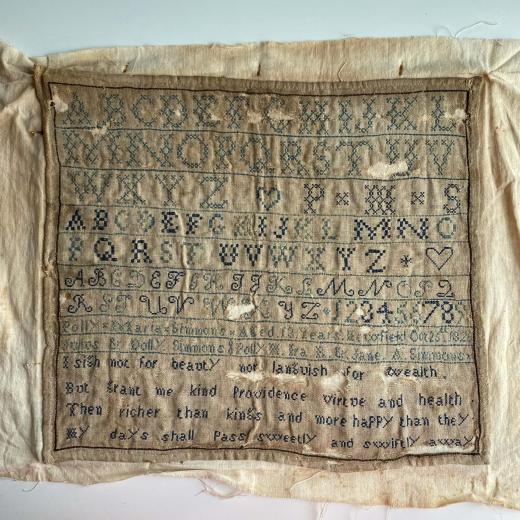 A B C D E F G H I J K L
M N O P Q R S T U V
W X Y Z ♡ P × M × S
A B C D E F G H I J K L M N O
P Q R S T U V W X Y Z * ♡
A B C D E F G H I J K L M N O P Q
R S T U V W X Y Z 1 2 3 4 5 6 7 8
Polly Maria Simmons Aged 13 Years Oct 25
Polly Simmons Polly M. Ira Jane A. Simmons
I sigh not for beauty nor languish for wealth
But grant me kind Providence virtue and health
Then richer than kings and more happy than they
My days shall pass sweetly and swiftly away